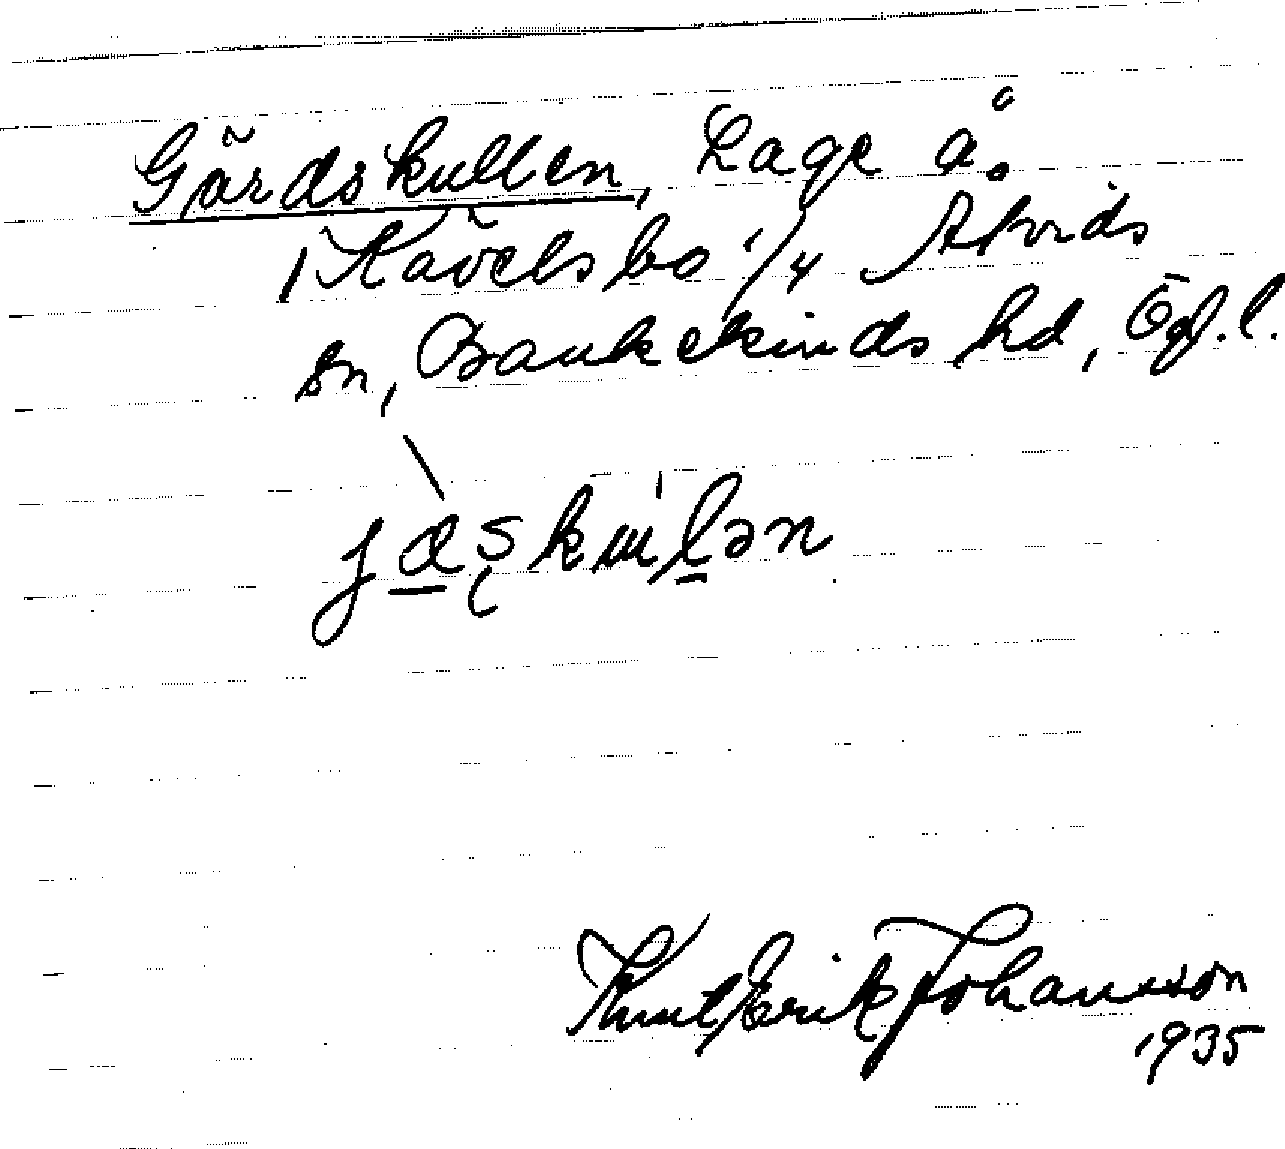 Gärdskullen, Lage å.
i Kävelsbo 1/4 Åtvids
sn, Bankekinds hd, Ögl. l.
Knut Erik Johansson
1935